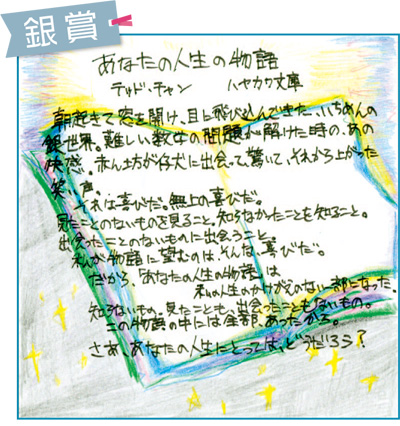 銀賞
あなたの人生の物語
テッド・チャン ハヤカワ文庫
朝起きて窓を開け、目に飛び込んできた、いちめんの
銀世界。難しい数学の問題が解けた時の、あの
快感。赤ん坊が仔犬に出会って驚いて、それから上がった
笑い声。
それは喜びだ。無上の喜びだ。
見たことのないものを見ること。知らなかったことを知ること。
出会ったことのないものに出会うこと。
私が物語に望むのは、そんな「喜び」だ。
だから、「あなたの人生の物語」は
私の人生のかけがえのない一部になった。
知らないもの。見たことも、出会ったこともないもの。
この物語の中には全部、あったから。
さあ、あなたの人生にとっては、どうだろう?